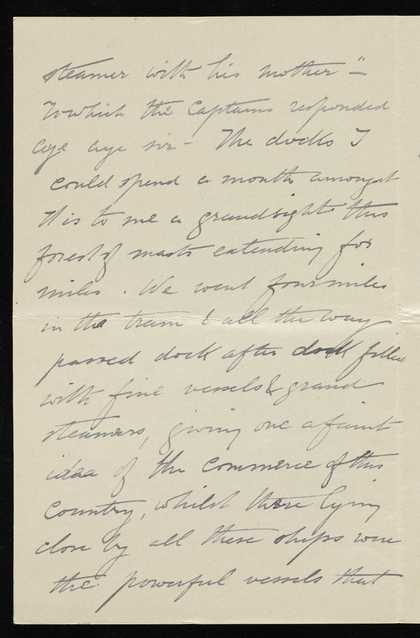 steamer with his mother"–
To which the captains responded
aye aye sir – The docks I
could spend a month amongst
It is to me a grand sight this
forest of masts extending for
miles. We went four miles
in the tram & all the way
passed dock after dock filled
with fine vessels & grand
steamers, giving one a faint
idea of the commerce of this
Country, whilst there lying
close by all these ships were
the powerful vessels that